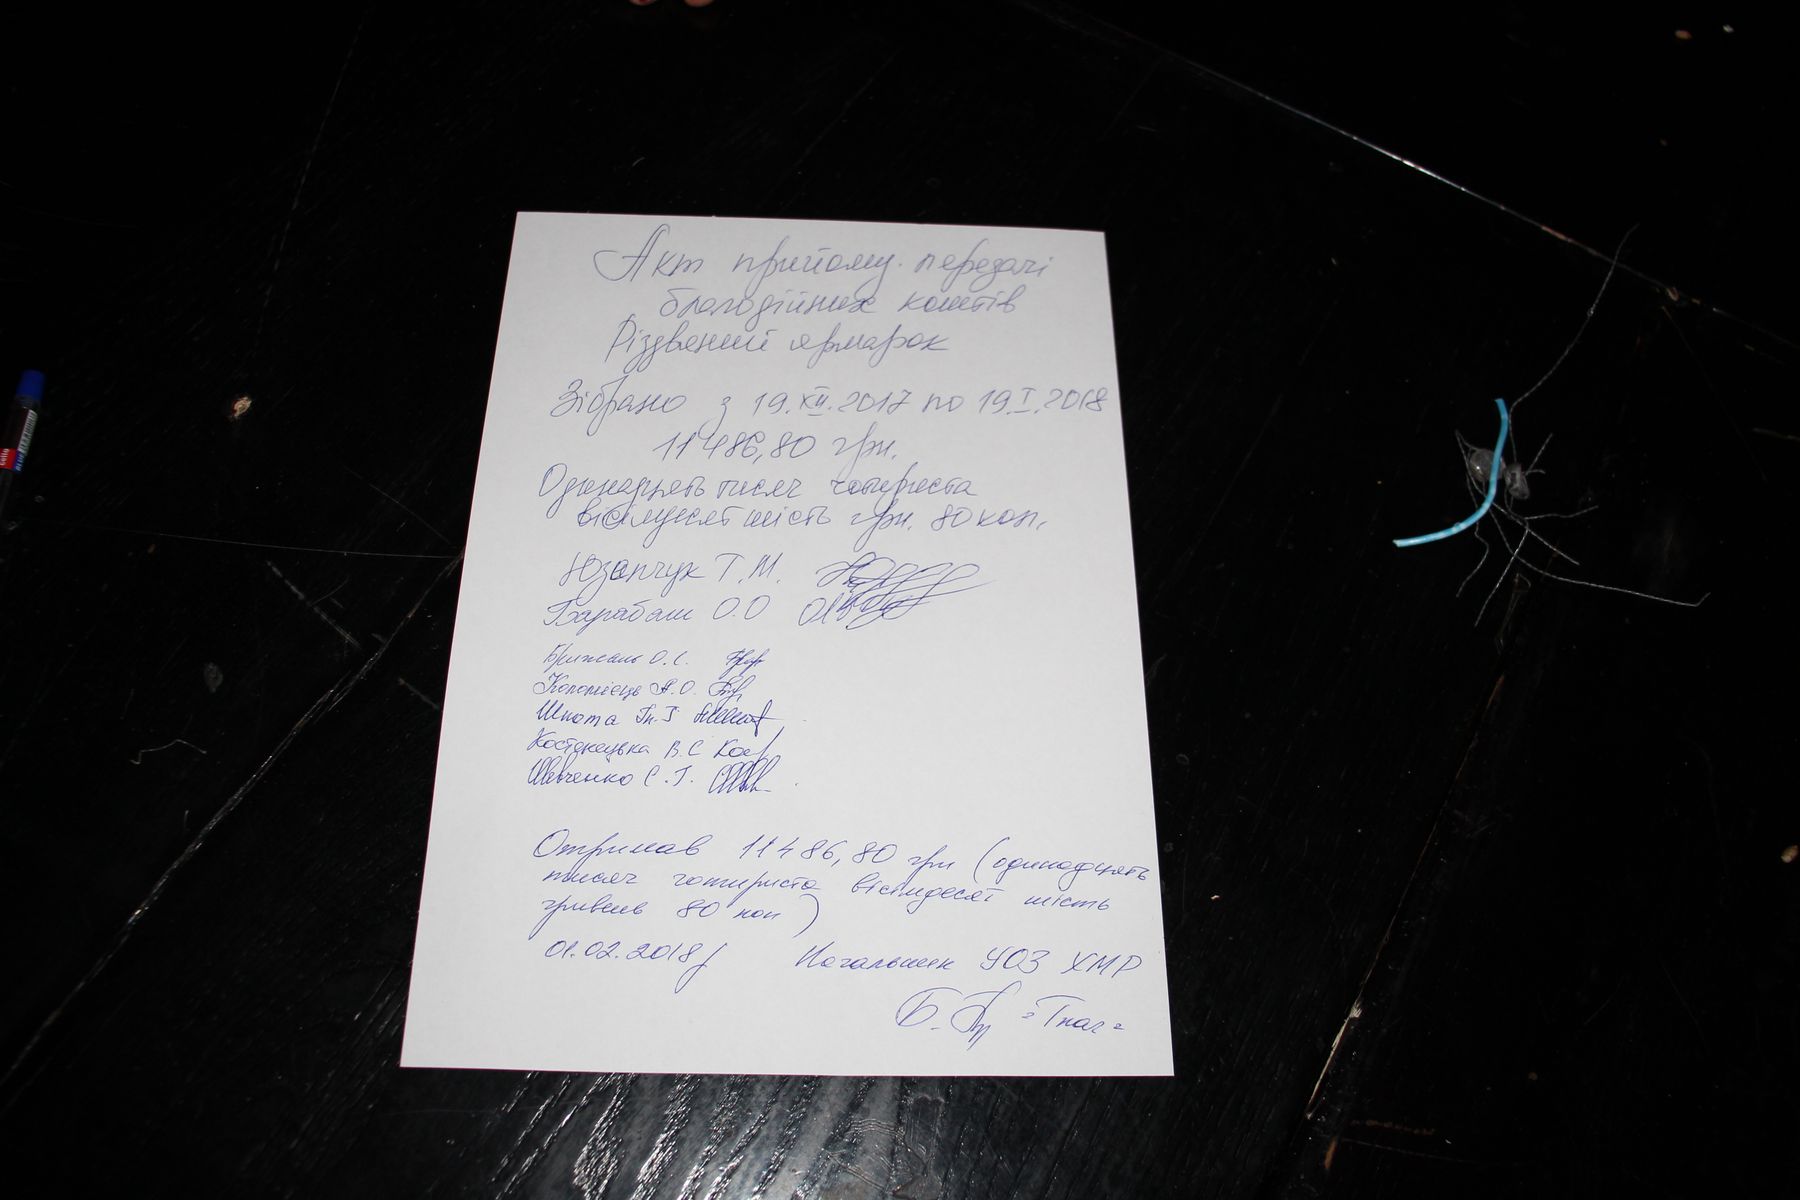 Акт прийому передачі
благодійних коштів
Різдвяний ярмарок
Зібрано з 19.XII.2017 по 19.I.2018
11486,80 грн.
Одинадцять тисяч чотириста
вісімдесят шість грн. 80 коп.
Юзапчук Т.М.
Барабаш О.О
О.С.
Коломієць А.О.
Шкота Гн.Г
Костенецька В.С
Шевченко С.Г.
Отримав 11486,80 грн (одинадцять
тисяч чотириста вісімдесят шість
гривень 80 коп)
01.02.2018р Начальник УОЗ ХМР
Б. Ткач